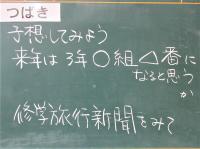 つばき
予想してみよう
来年は3年○組△番に
なると思う
か
修学旅行新聞をみて